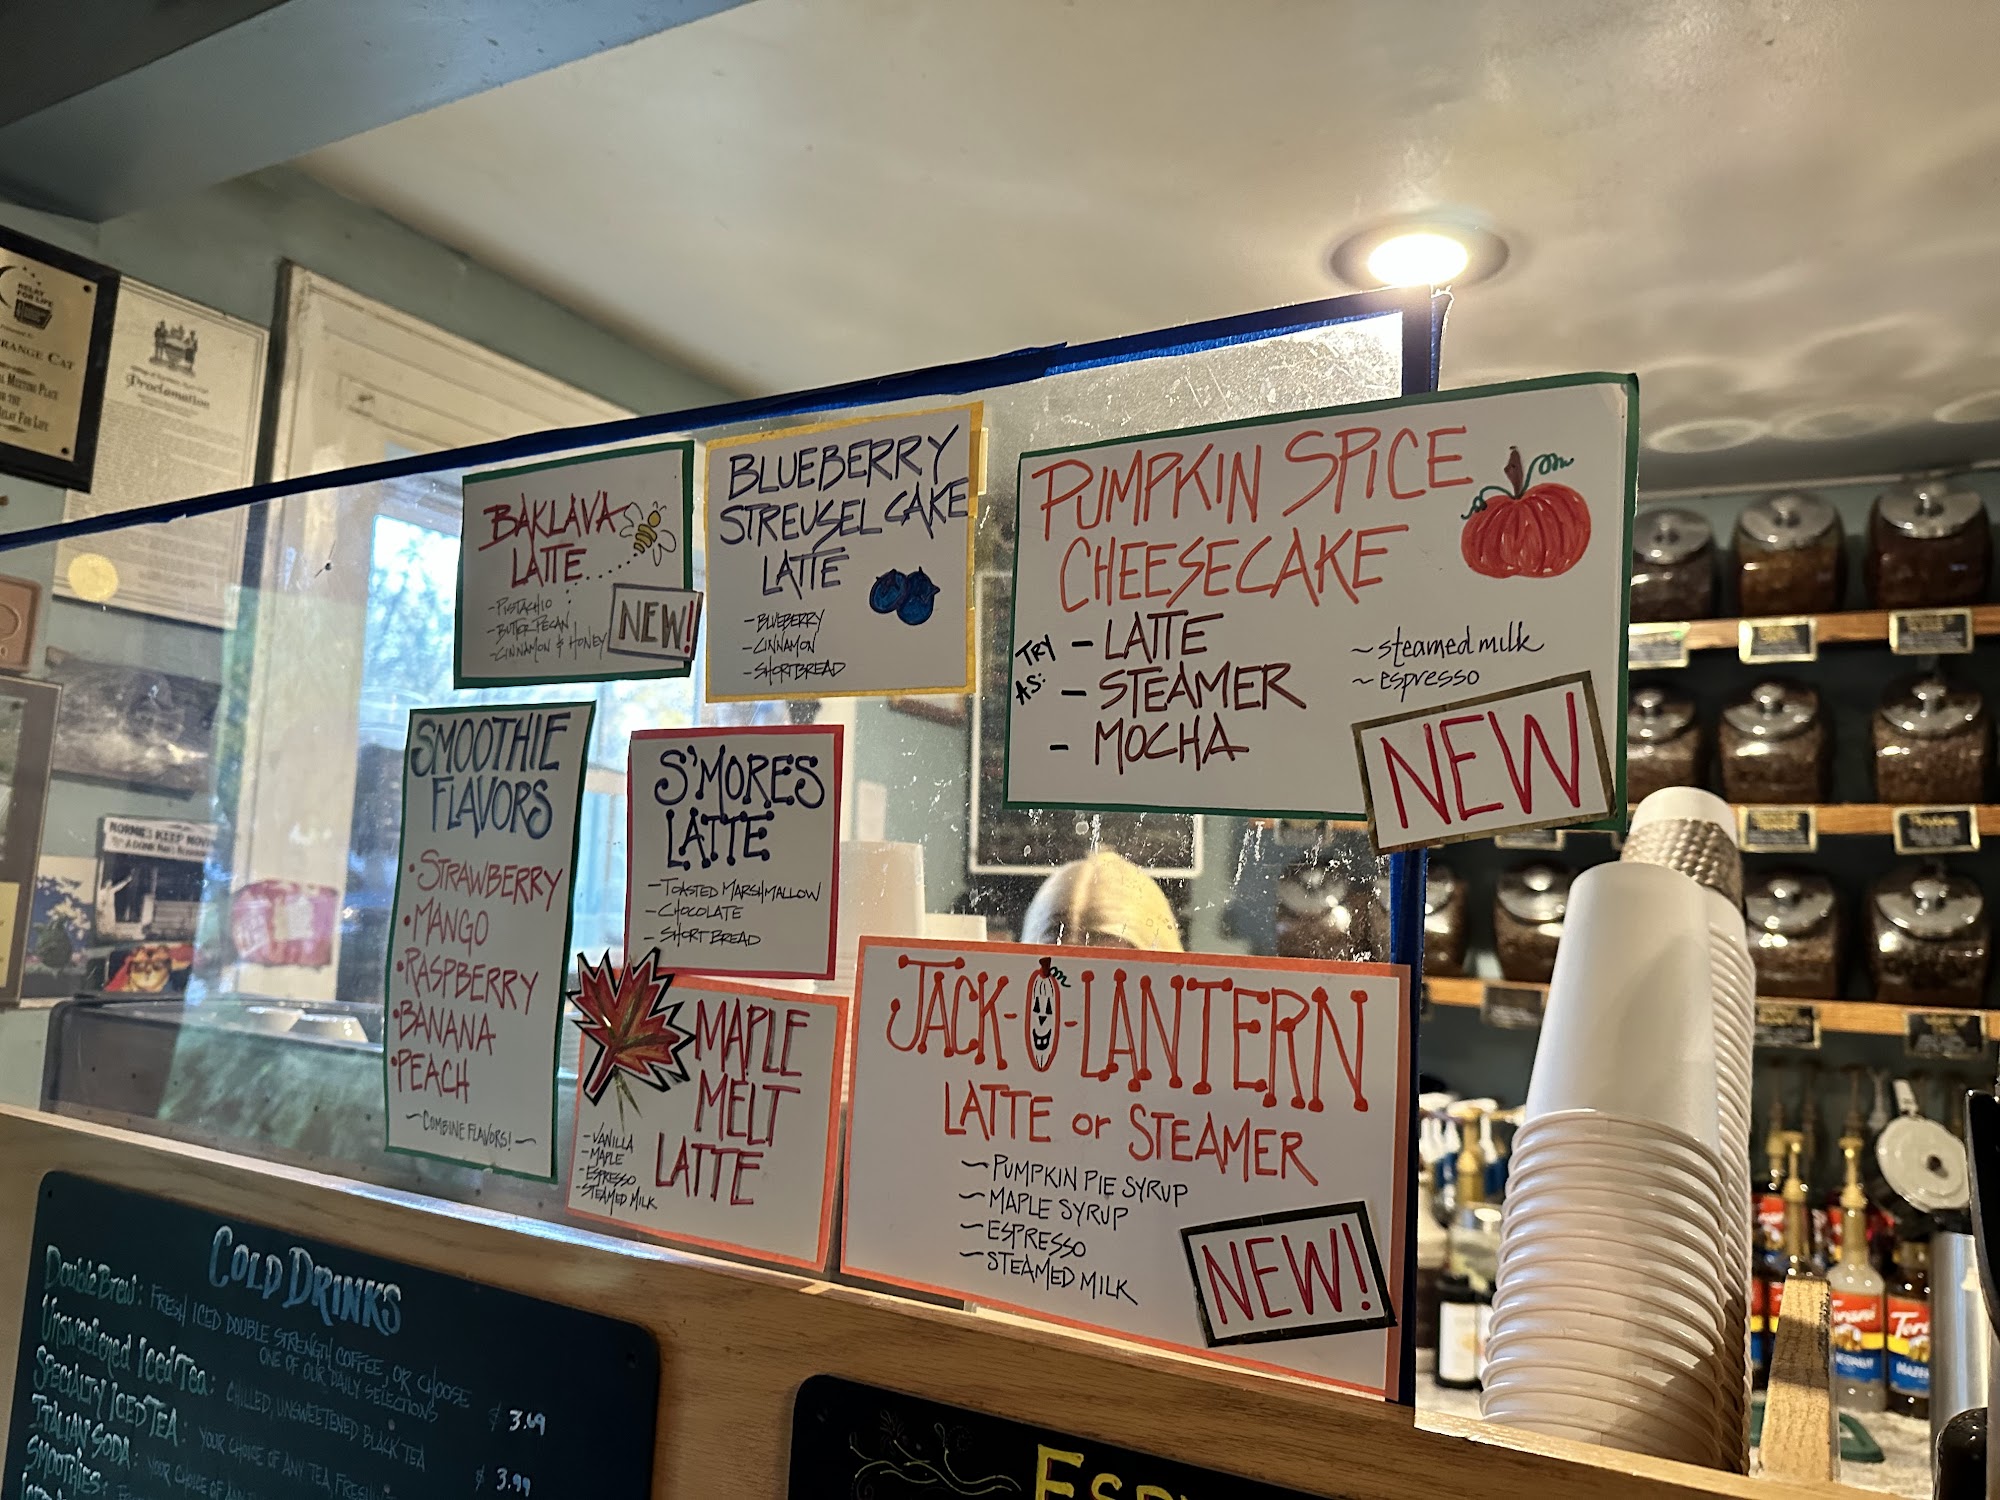 RELAY
FOR LIFE
RANGE CAT
MEETING PLACE
FOR THE
RELAY FOR LIFE
Proclamation
BAKLAVA
LATTE
-PISTACHIO
-BUTTER PECAN
-CINNAMON & HONEY
NEW!
BLUEBERRY
STREUSEL CAKE
LATTE
-BLUEBERRY
-CINNAMON
-SHORTBREAD
PUMPKIN SPICE
CHEESECAKE
TRY
AS:
- LATTE
- STEAMER
- MOCHA
~steamed milk
~espresso
NEW
SMOOTHIE
FLAVORS
•STRAWBERRY
•MANGO
•RASPBERRY
•BANANA
•PEACH
~COMBINE FLAVORS!~
S'MORES
LATTE
-TOASTED MARSHMALLOW
-CHOCOLATE
-SHORTBREAD
MAPLE
MELT
LATTE
-VANILLA
-MAPLE
-ESPRESSO
-STEAMED MILK
JACK-O-LANTERN
LATTE or STEAMER
~PUMPKIN PIE SYRUP
~MAPLE SYRUP
~ESPRESSO
~STEAMED MILK
NEW!
COLD DRINKS
Double Brew: FRESH ICED DOUBLE STRENGTH COFFEE, OR CHOOSE
ONE OF OUR DAILY SELECTIONS $3.69
Unsweetened Iced Tea: CHILLED, UNSWEETENED BLACK TEA
SPECIALTY ICED TEA: YOUR CHOICE OF ANY TEA, FRESHLY $3.99
ITALIAN SODA: YOUR CHOICE OF ANY
SMOOTHIES: